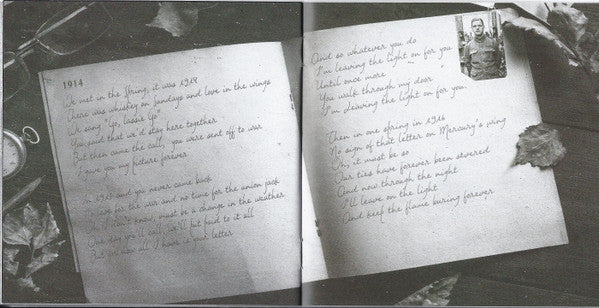 1914
We met in the Spring, it was 1914
There was whiskey on Sundays and love in the wings
We sang "Go, lassie Go"
You said that we'd stay here together
But then came the call, you were sent off to war
I gave you my picture forever
In 1915 and you never came back
for the war and no time for the union jack
Oh, I don't know, must be a change in the weather
One day you'll call, we'll put paid to it all
But for now all I have is your letter
And so whatever you do
I'm leaving the light on for you
Until once more
You walk through my door
I'm leaving the light on for you.
Then in one spring in 1916
No sign of that letter on Mercury's wing
Oh, it must be so
Our ties have forever been severed
And now through the night
I'll leave on the light
And keep the flame buring forever